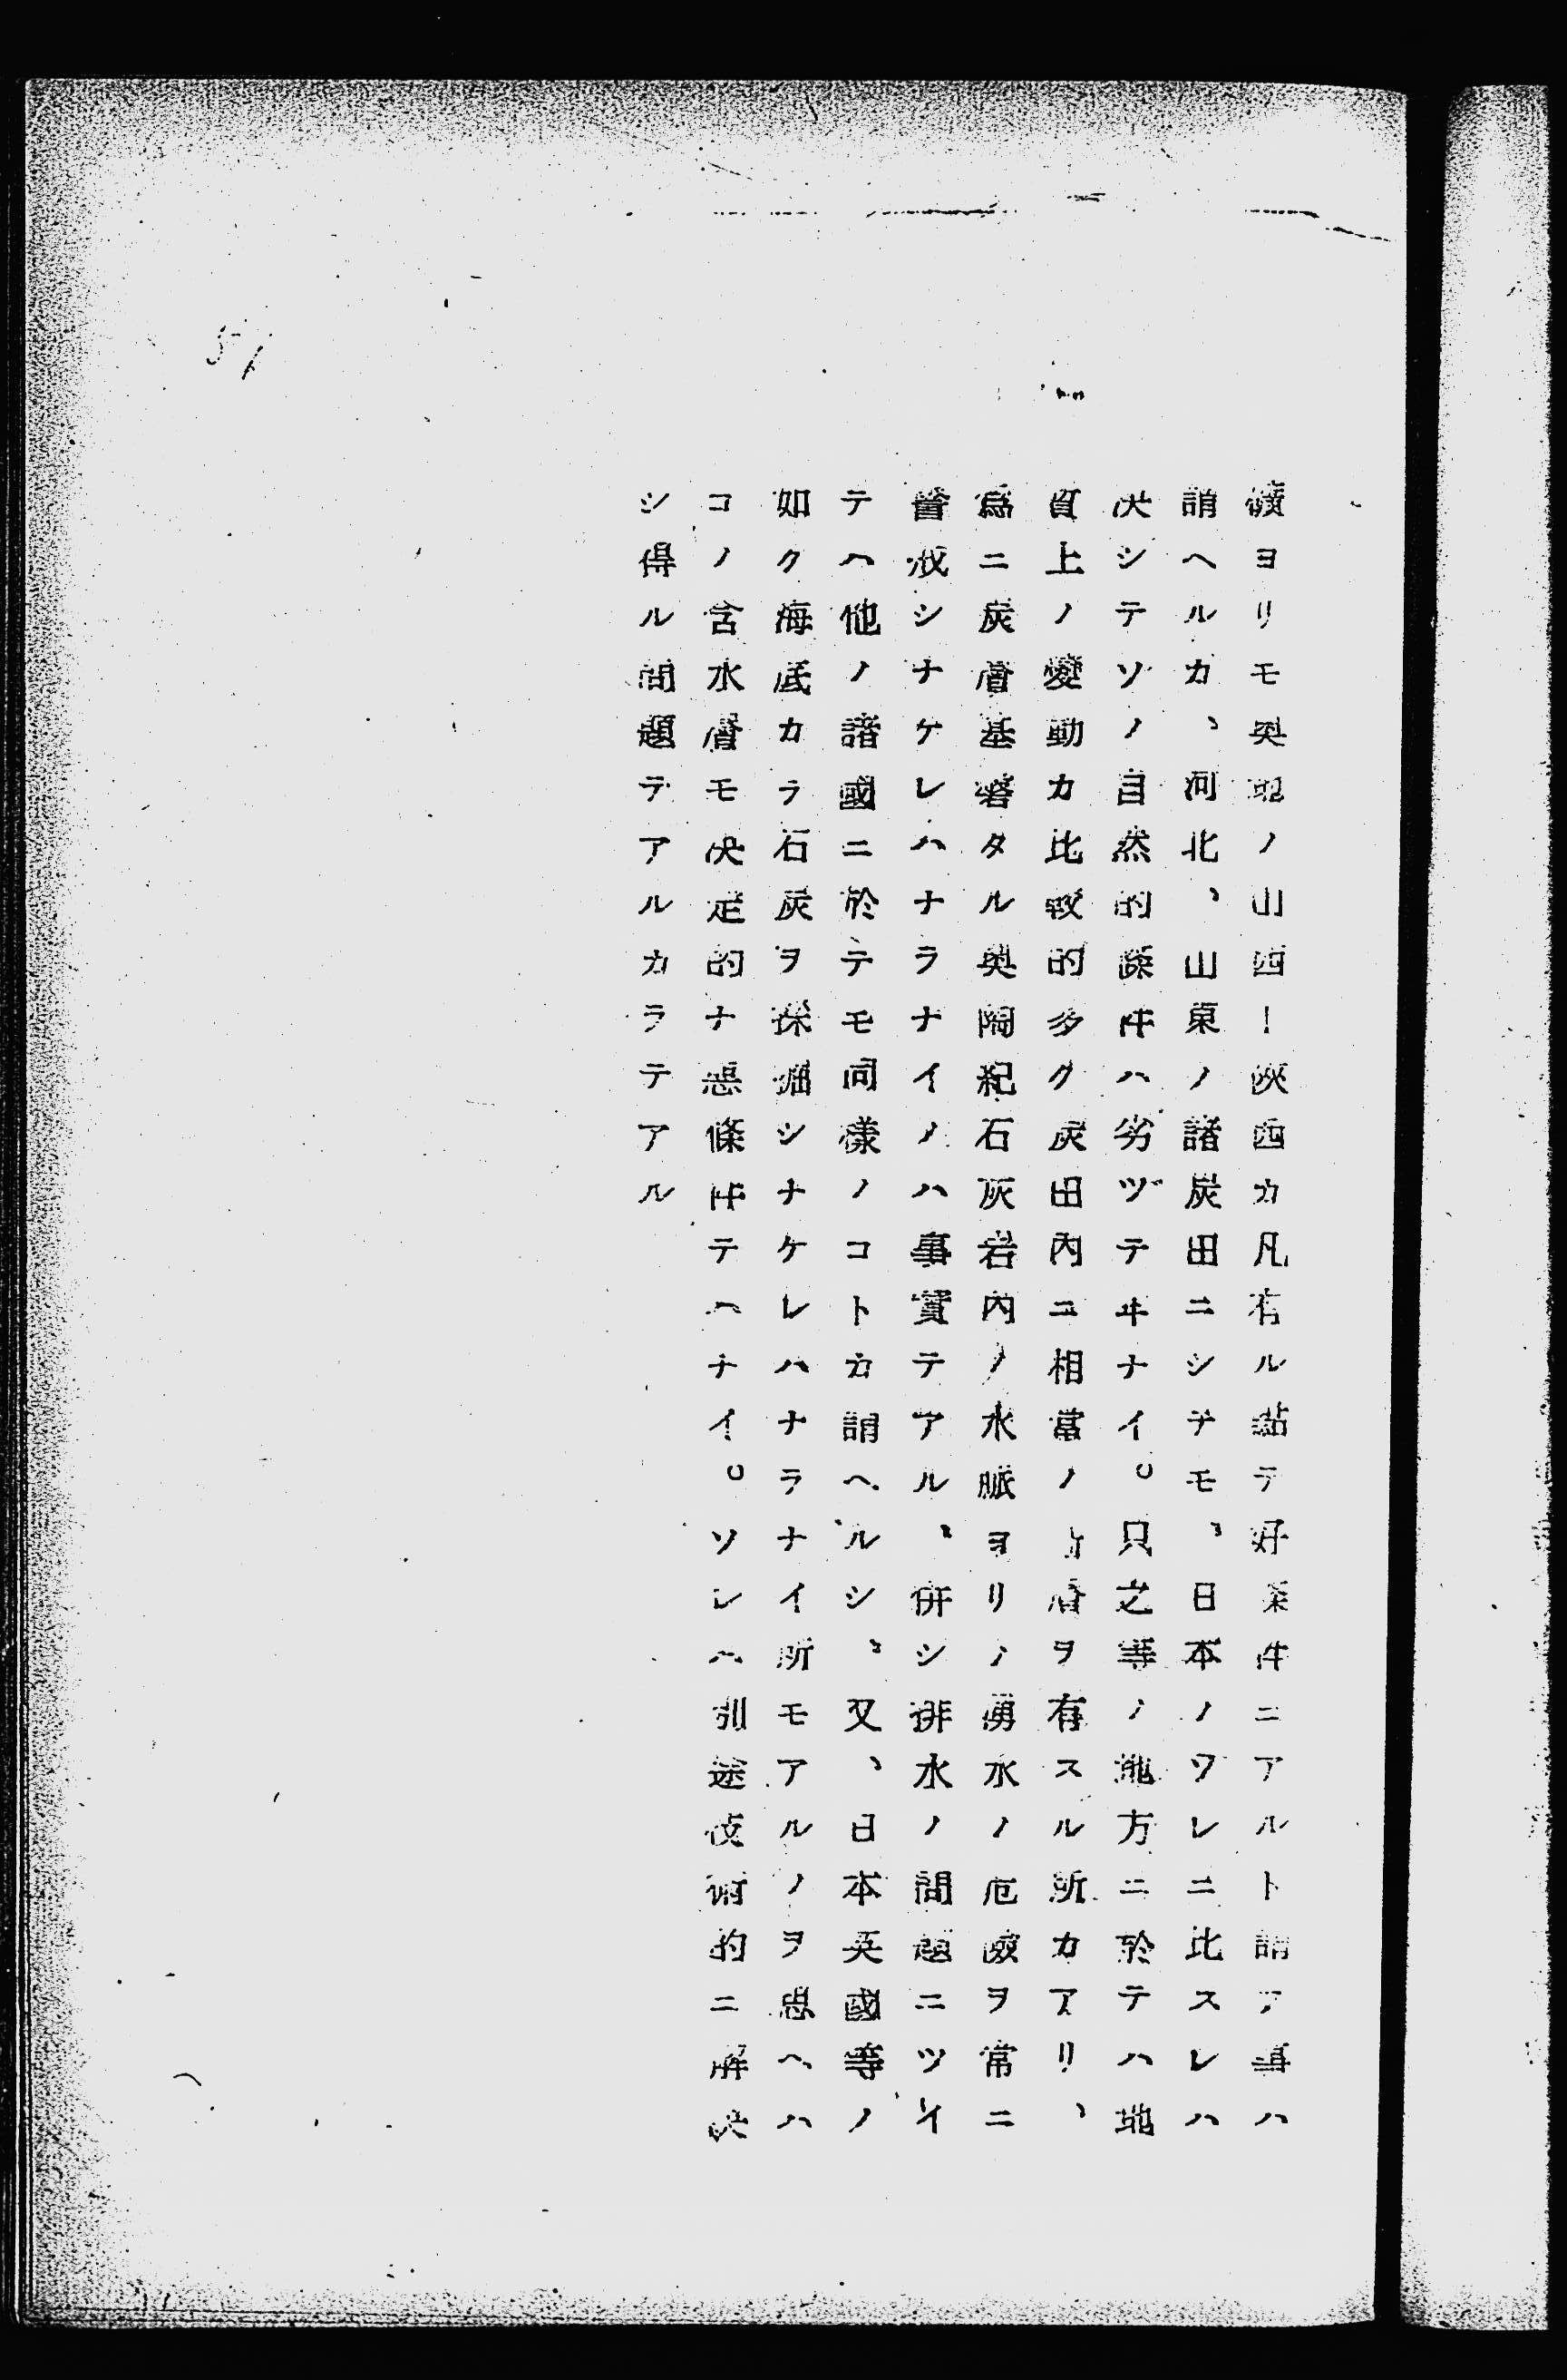 礦ヨリモ奥地ノ山西ー陜西カ凡有ル點テ好条件ニアルト謂ア事ハ
謂ヘルカ、河北、山東ノ諸炭田ニシテモ、日本ノワレニ比スレハ
决シテソノ自然的條件ハ劣ツテヰナイ。只之等ノ地方ニ於テハ地
質上ノ變動カ比較的多ク炭田内ニ相當ノ層ヲ有スル所カアリ、
爲ニ炭層基磐タル奥陶紀石灰岩内ノ水脈ヨリノ湧水ノ厄險ヲ常ニ
警戒シナケレハナラナイノハ事實テアル、併シ排水ノ問題ニツイ
テハ他ノ諸國ニ於テモ同樣ノコトカ謂ヘルシ、又、日本英國等ノ
如ク海底カラ石炭ヲ採掘シナケレハナラナイ所モアルノヲ思ヘハ
コノ含水層モ决定的ナ惡條件テハナイ。ソレハ別途技術的ニ解决
シ得ル問題テアルカラテアル
51